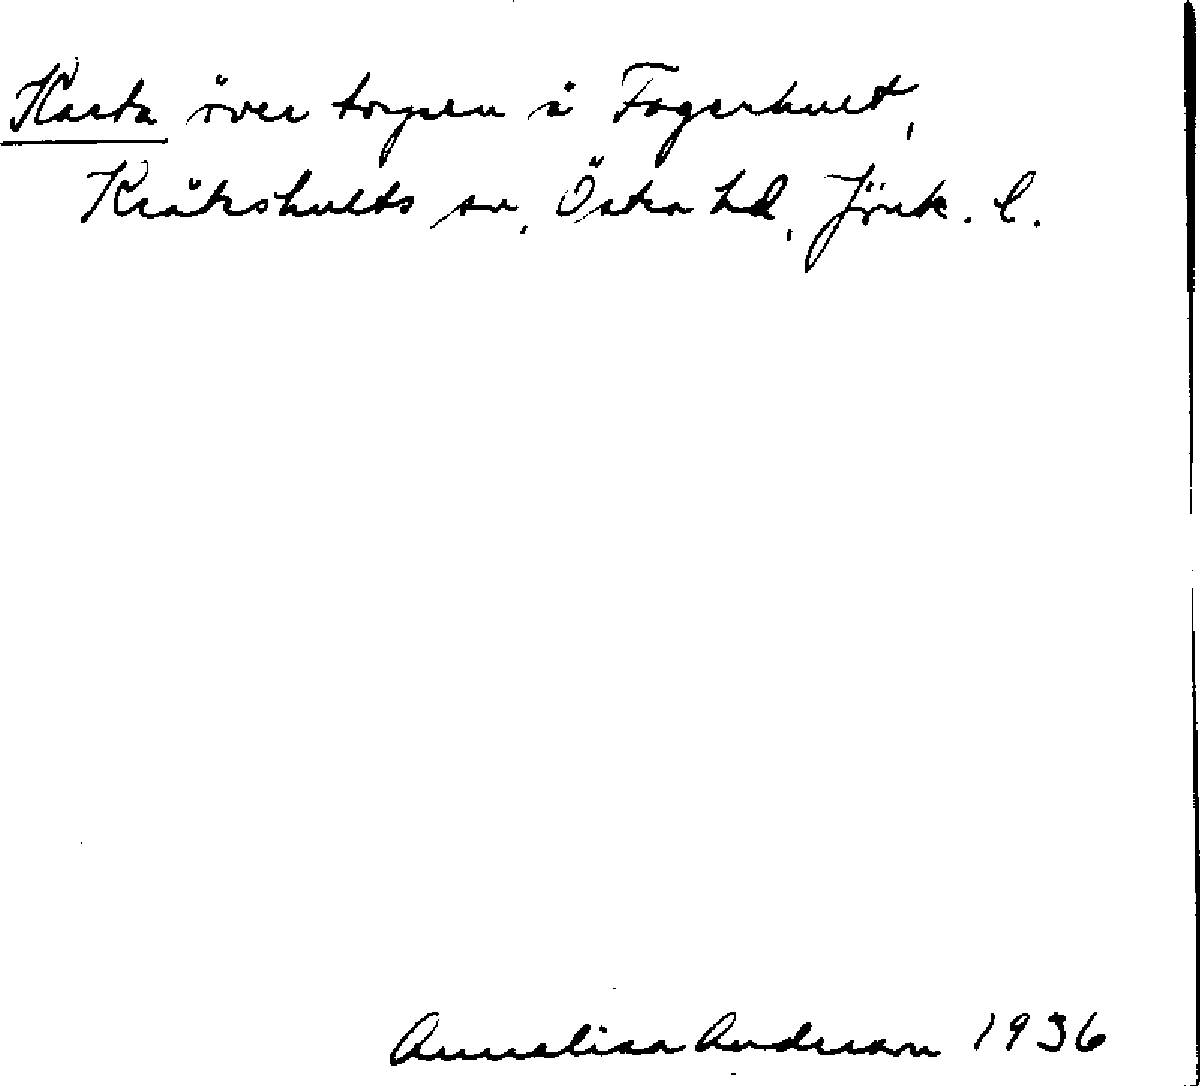 Karta över torpen å Fagerhult,
Kråkshults sn, Östra hd, Jönk. l.
Annalisa Anderson 1936